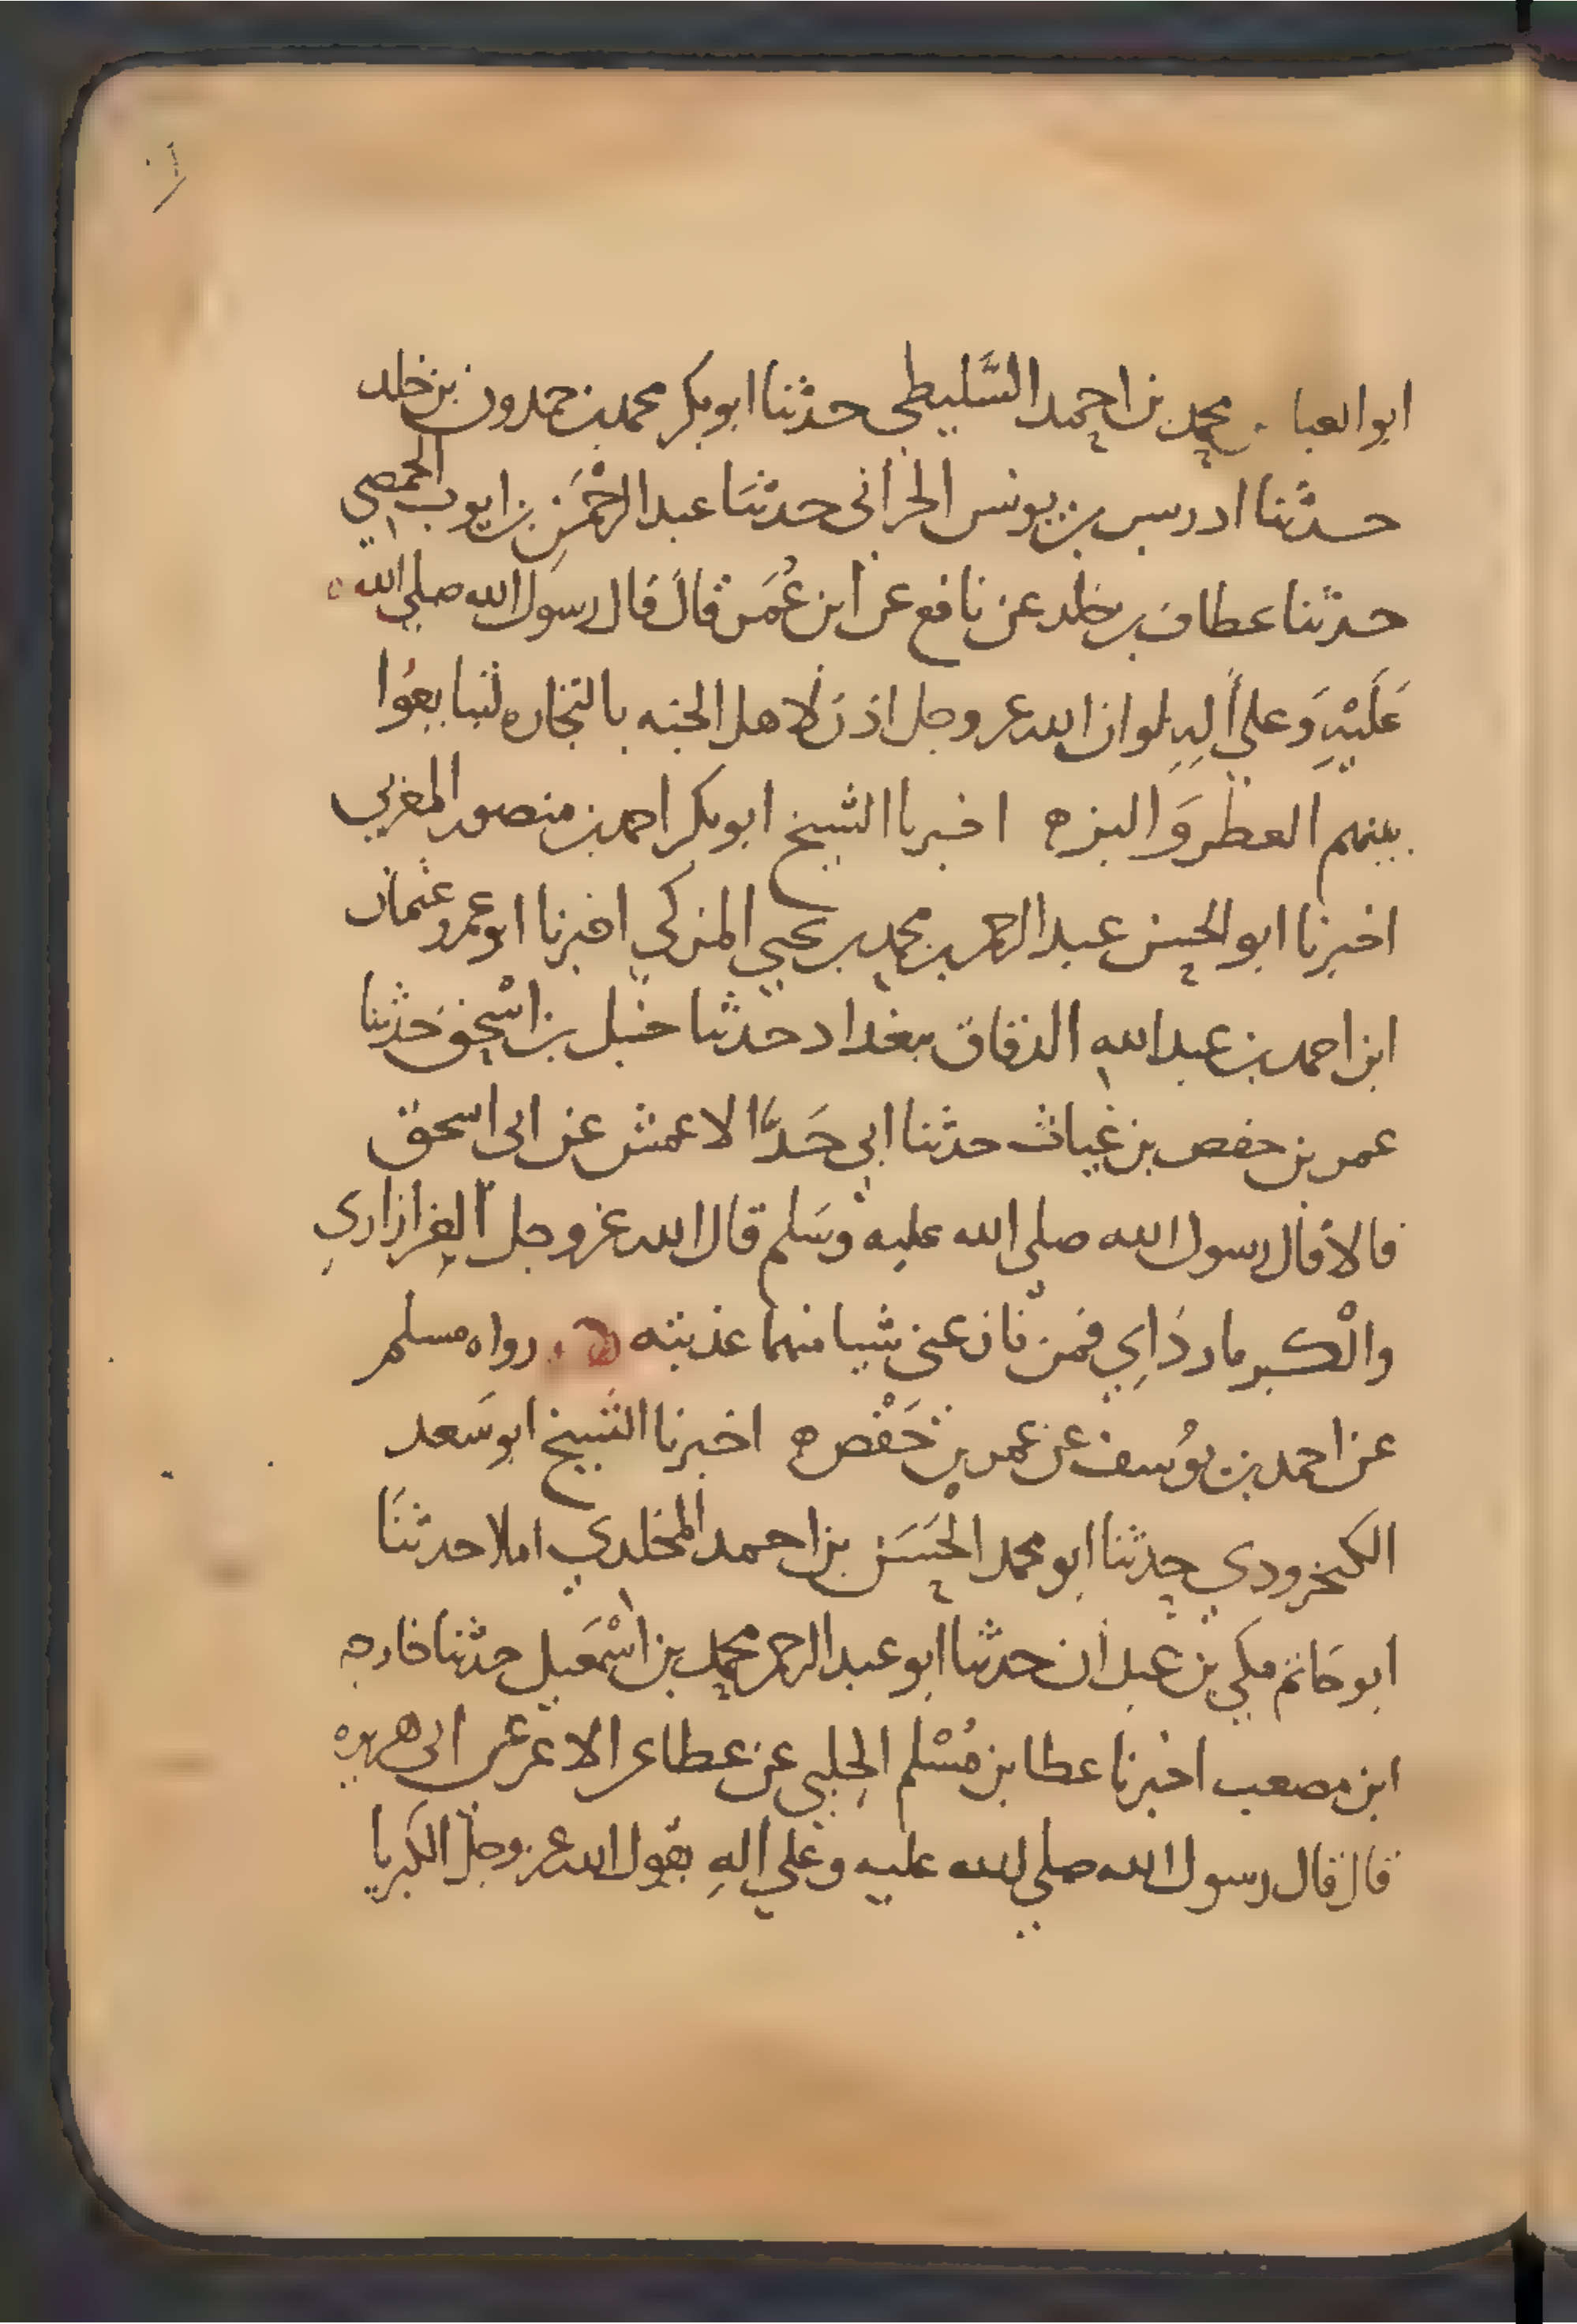 ابو العبا محمد بن احمد السَّليطي حدثنا ابو بكر محمد بن حمدون بن خلد
حدثنا ادريس بن يونس الحراني حدثنا عبد الرحمن بن ايوب الحمصي
حدثنا عطاف بن خلد عن نافع عن ابن عُمَر قال قال رسول الله صلي الله
عَلَيْهِ وَعلي اَلِهِ لو ان الله عز وجل اذن لاهل الجنه بالتجاره لتبايعُوا
بينهم العطر وَالبز ه اخبرنا الشيخ ابو بكر احمد بن منصور المغربي
اخبرنا ابو الحسن عبد الرحمن بن محمد بن يحيي المزكي اخبرنا ابو عمرو عثمان
ابن احمد بن عبد الله الدقاق ببغداد حدثنا حنبل بن اسْحق حَدثنا
عمر بن حفص بن غياث حدثنا ابي حَدثنا الاعمش عن ابي اسحق
قالا قال رسول الله صلي الله عليه وسَلم قال الله عز وجل العز ازاري
والْكبر ماردَاي فمن نازعني شيا منهما عذبته ه رواه مسلم
عن احمد بن يوُسف عن عمر بن حَفْص ه اخبرنا الشيخ ابو سَعد
الكنجرودي حدثنا ابو محمد الحَسَن بن احمد المخلدي املا حدثنَا
ابو حَاتم مكي بن عبدان حدثنا ابو عبد الرحمن محمد بن اسْمَعيل حدثنا خارجه
ابن مصعب اخبرنا عطا بن مُسْلم الحلبي عن عطا عن الاغر عن ابي هريره
قال قال رسول الله صلي الله عليه وعَلي الهِ يقول الله عز وجل الكبريا